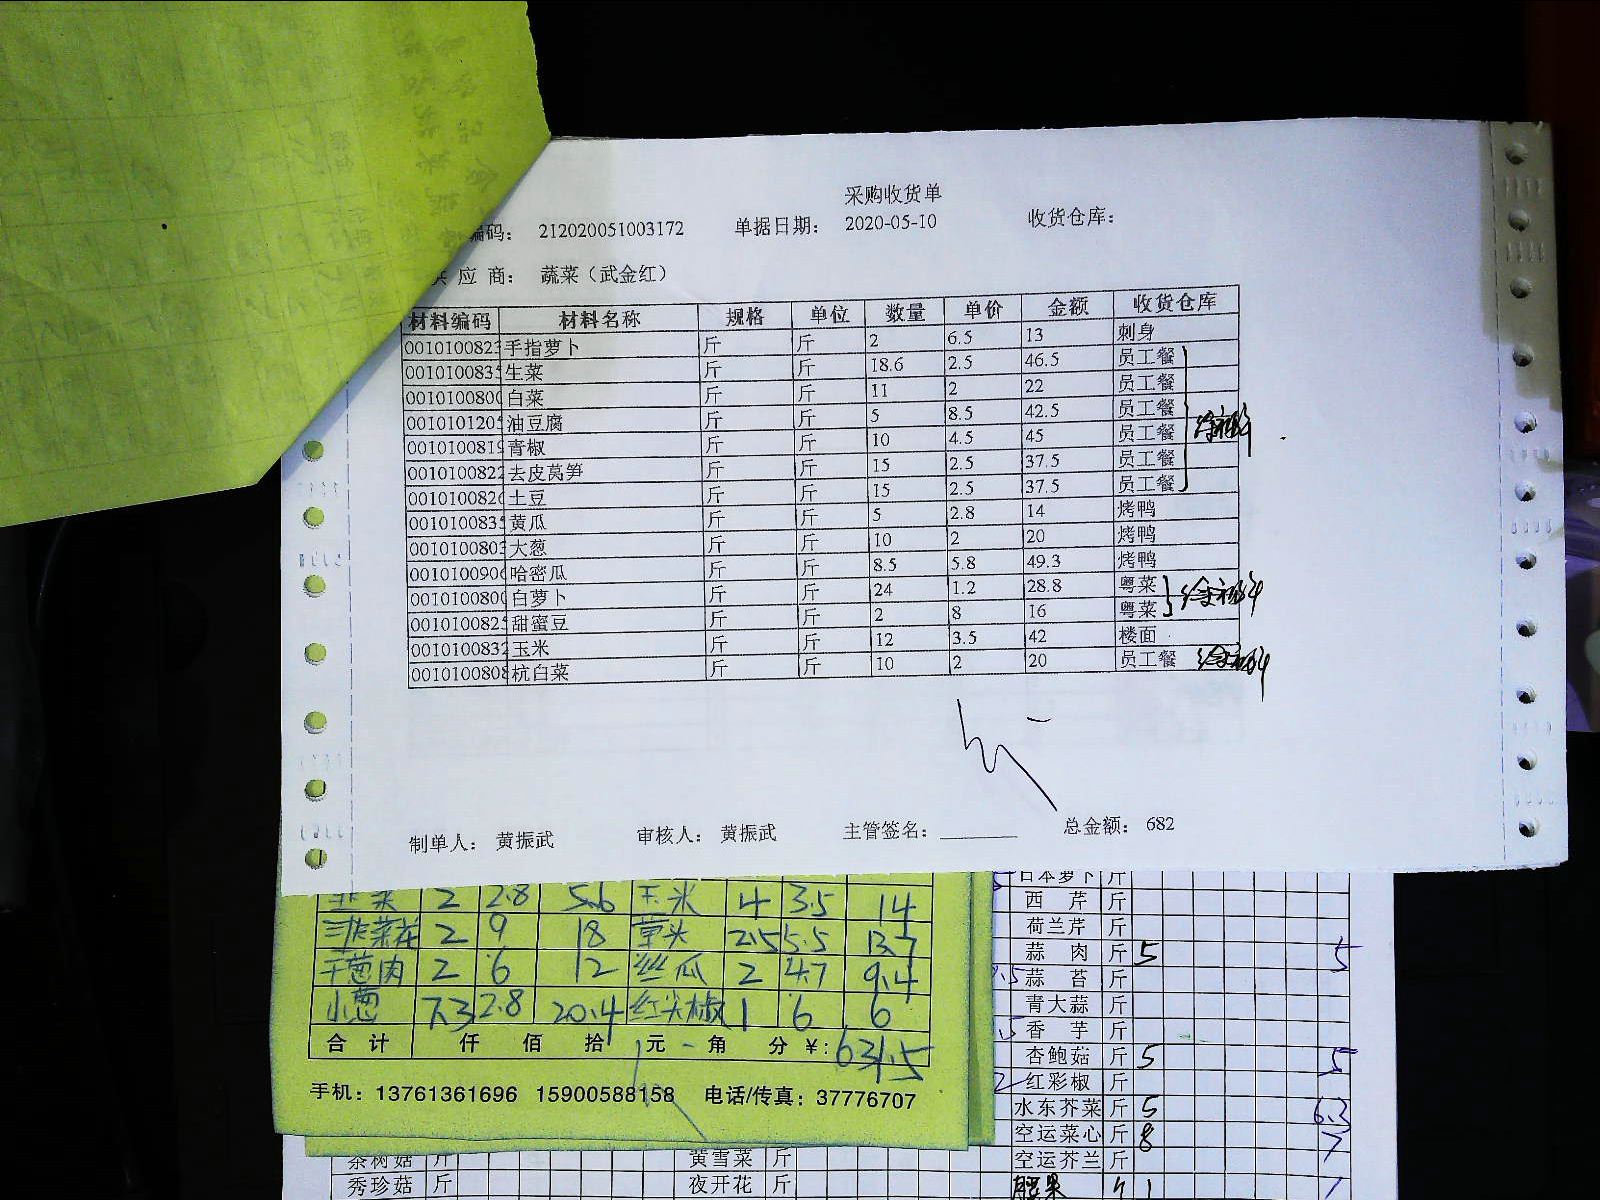 采购收货单
编码： 212020051003172 单据日期： 2020-05-10 收货仓库：
应 商： 蔬菜（武金红）
材料编码 材料名称 规格 单位 数量 单价 金额 收货仓库
0010100823 手指萝卜 斤 斤 2 6.5 13 刺身
0010100835 生菜 斤 斤 18.6 2.5 46.5 员工餐
0010100800 白菜 斤 斤 11 2 22 员工餐
0010101205 油豆腐 斤 斤 5 8.5 42.5 员工餐
0010100819 青椒 斤 斤 10 4.5 45 员工餐
0010100822 去皮莴笋 斤 斤 15 2.5 37.5 员工餐
0010100826 土豆 斤 斤 15 2.5 37.5 员工餐
0010100835 黄瓜 斤 斤 5 2.8 14 烤鸭
0010100803 大葱 斤 斤 10 2 20 烤鸭
0010100906 哈密瓜 斤 斤 8.5 5.8 49.3 烤鸭
0010100800 白萝卜 斤 斤 24 1.2 28.8 粤菜
0010100825 甜蜜豆 斤 斤 2 8 16 粤菜
0010100832 玉米 斤 斤 12 3.5 42 楼面
0010100808 杭白菜 斤 斤 10 2 20 员工餐
制单人： 黄振武 审核人： 黄振武 主管签名： 总金额： 682
2 2.8 5.6 玉米 4 3.5 14
韭菜花 2 9 18 草头 2.5 5.5 13.7
干葱肉 2 6 12 丝瓜 2 4.7 9.4
小葱 7.3 2.8 20.4 红尖椒 1 6 6
合 计 仟 佰 拾 元 角 分 ¥: 631.5
手机：13761361696 15900588158 电话/传真：37776707
日本萝卜 斤
西 芹 斤
荷兰芹 斤
蒜 肉 斤 5 5
蒜 苔 斤
青大蒜 斤
香 芋 斤
杏鲍菇 斤 5 5
红彩椒 斤
水东芥菜 斤 5 6.3
空运菜心 斤 8 7
空运芥兰 斤
茶树菇 斤 黄雪菜 斤
秀珍菇 斤 夜开花 斤 腰果 斤 1 1